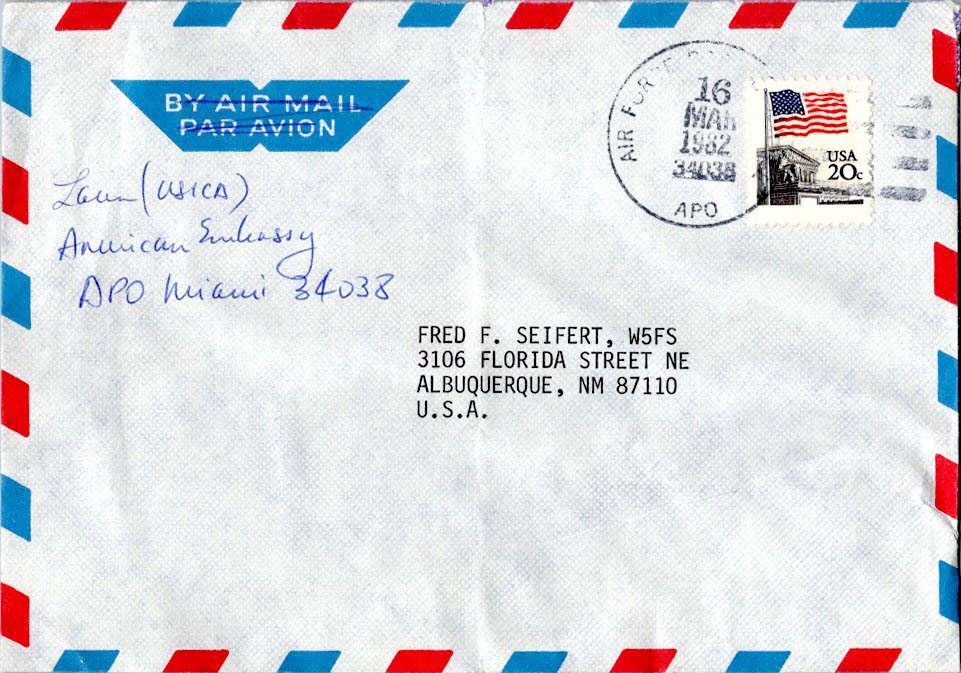 BY AIR MAIL
PAR AVION
AIR FORCE
16
MAR
1982
34038
APO
USA
20c
(USICA)
American Embassy
APO Miami 34038
FRED F. SEIFERT, W5FS
3106 FLORIDA STREET NE
ALBUQUERQUE, NM 87110
U.S.A.